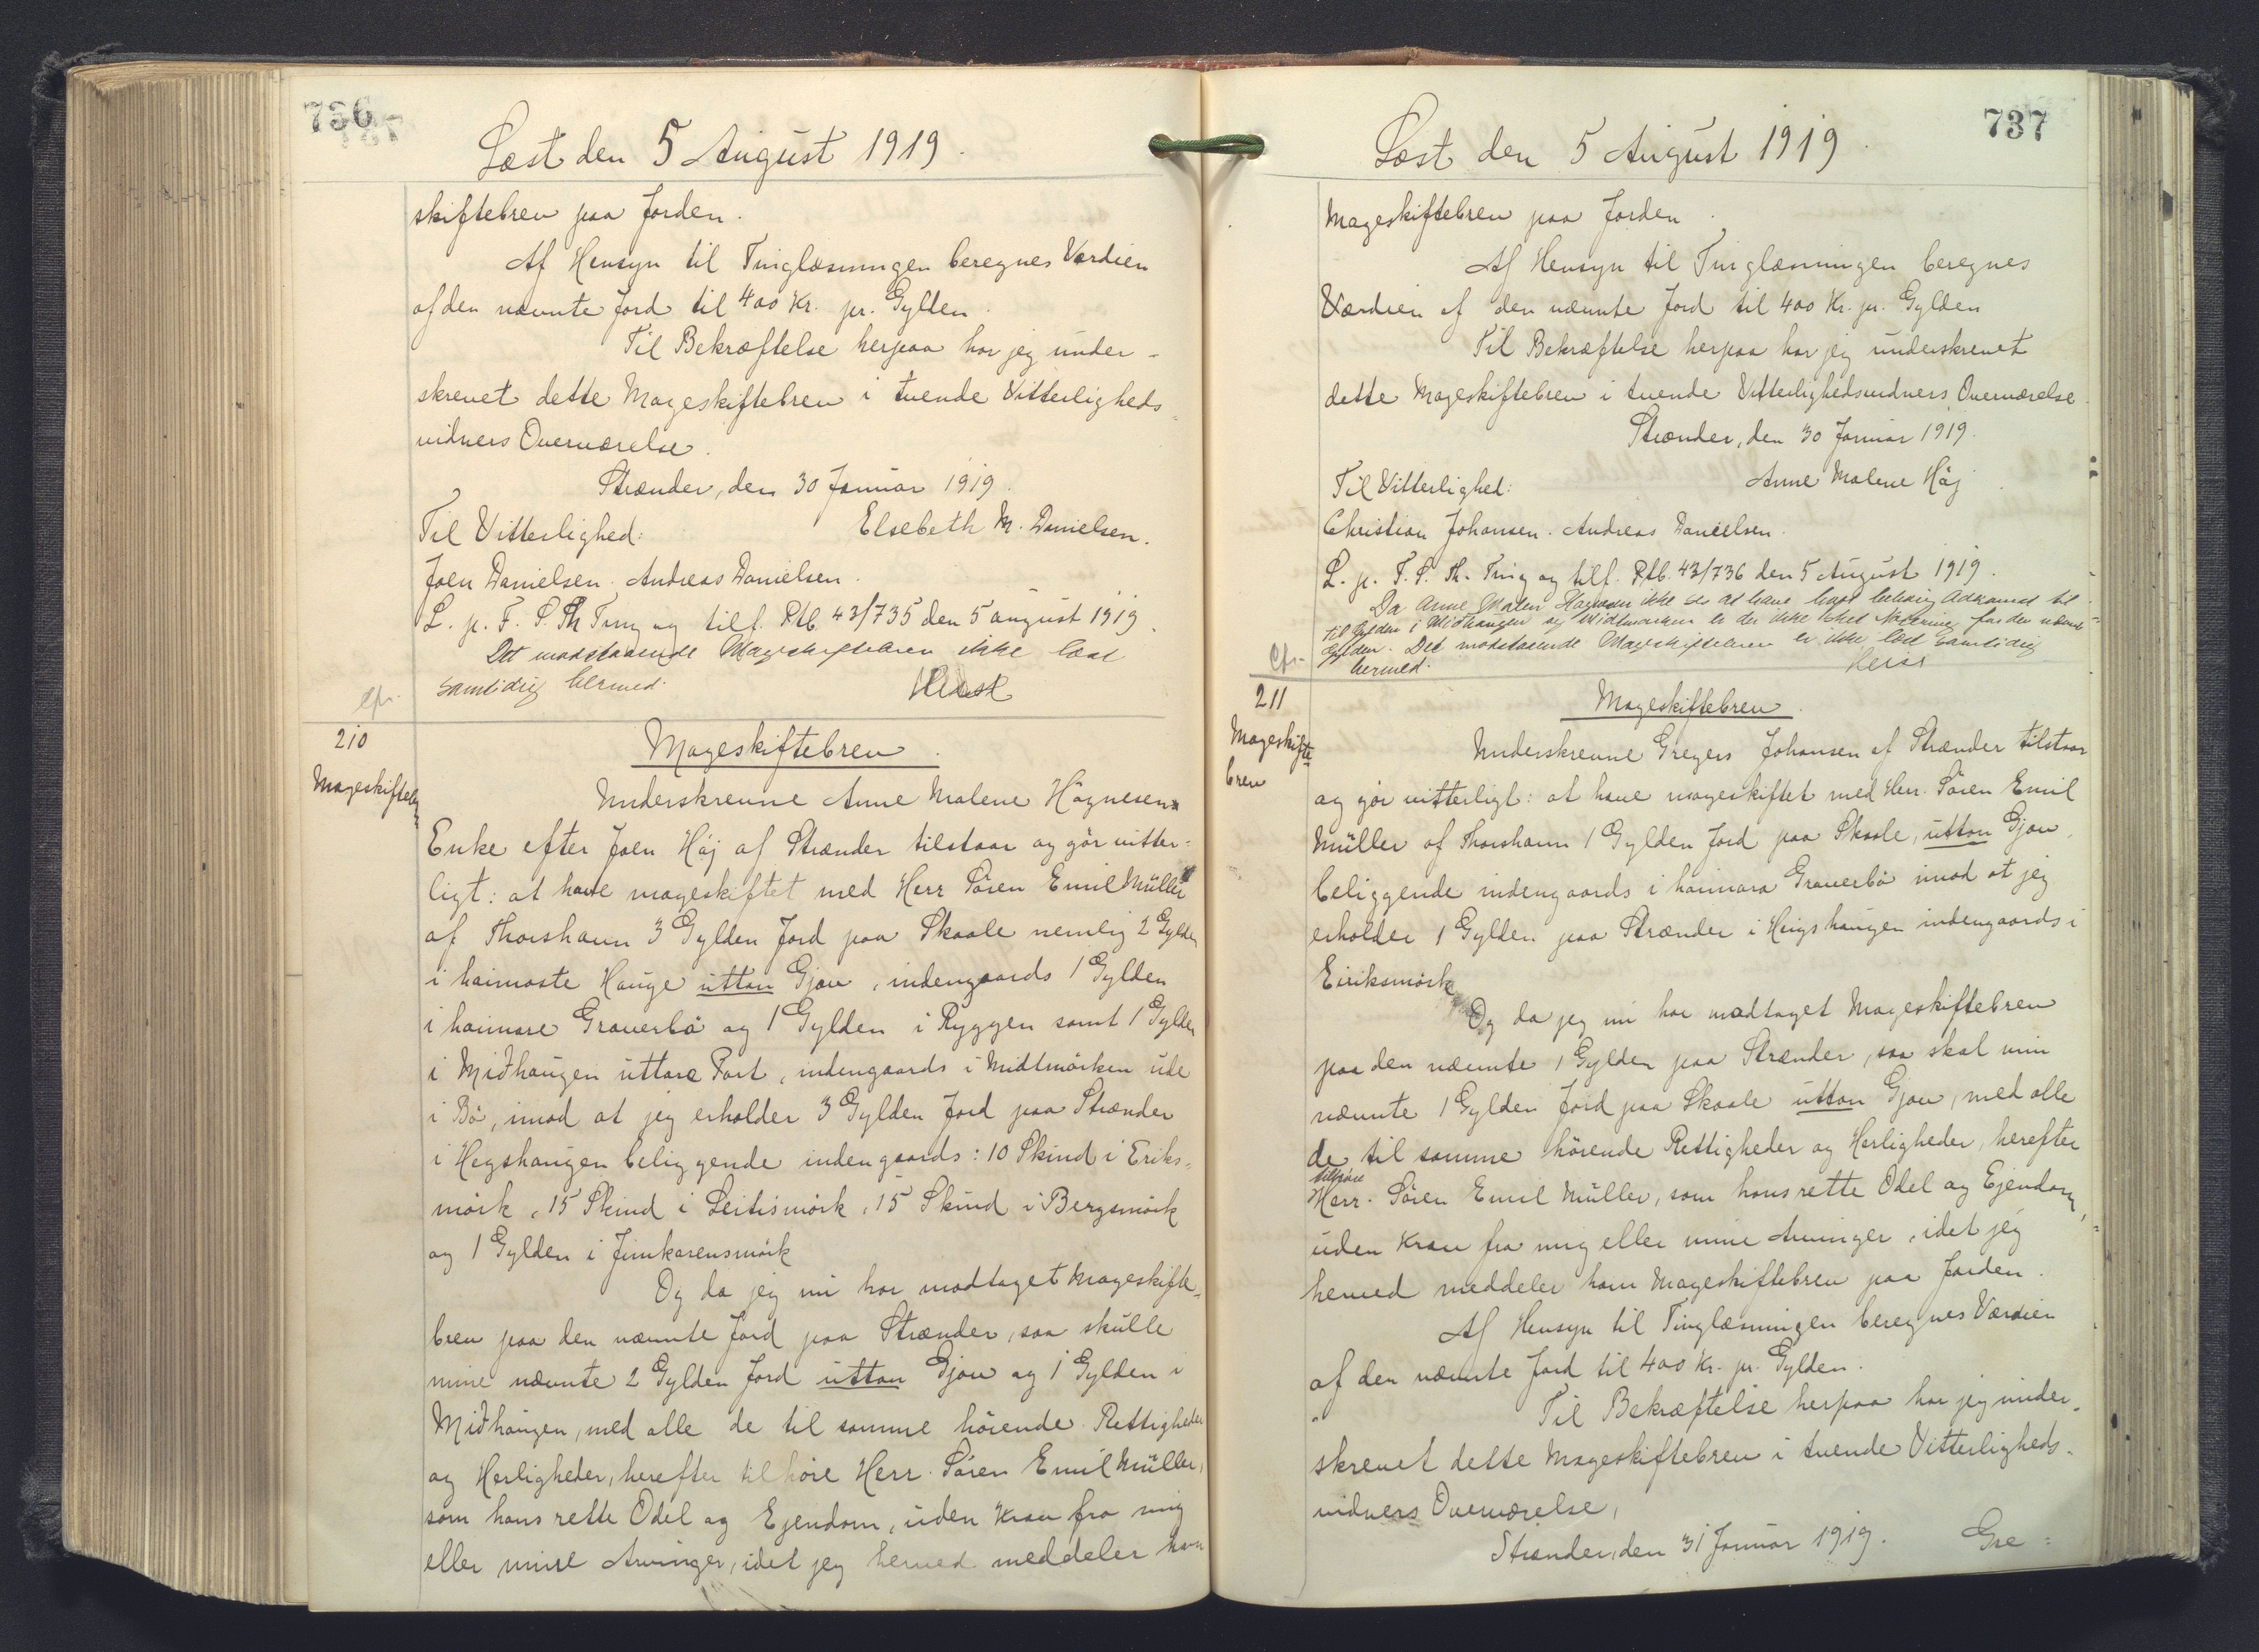 736
Læst den 5 August 1919.
skiftebrev paa Jorden.
Af Hensyn til Tinglæsningen beregnes Værdien
af den nævnte Jord til 400 Kr. pr. Gylden.
Til Bekræftelse herpaa har jeg under-
skrevet dette Mageskiftebrev i tvende Vitterligheds-
vidners Overværelse.
Strænder, den 30 Januar 1919.
Til Vitterlighed: Elsebeth M. Danielsen.
Joen Danielsen. Andreas Danielsen.
L. p. F. S. Th Ting og tilf. Ptb. 43/735 den 5 august 1919.
Det modstaaende Mageskiftebrev ikke læst
samtidig hermed.
cfr.
210
Mageskiftebrev
Mageskiftebrev.
Underskrevne Anne Malene Högnesen
Enke efter Joen Háj af Strænder tilstaar og gör vitter-
ligt: at have mageskiftet med Herr Sören Emil Müller
af Thorshavn 3 Gylden Jord paa Skaale nemlig 2 Gylden
i haimaste Hauge uttan Gjow, indengaards 1 Gylden
i haimare Graverbö og 1 Gylden i Ryggen samt 1 Gylden
i Miðhaugen uttare Part, indengaards i Midtmörken ude
i Bö, imod at jeg erholder 3 Gylden Jord paa Strænder
i Hegshaugen beliggende indengaards: 10 Skind i Eriks-
mörk, 15 Skind i Leitismörk, 15 Skind i Bergsmörk
og 1 Gylden i Jimkarensmörk
Og da jeg nu har modtaget Mageskifte-
brev paa den nævnte Jord paa Strænder, saa skulle
mine nævnte 2 Gylden Jord uttan Gjow og 1 Gylden i
Miðhaugen, med alle de til samme hörende Rettigheder
og Herligheder, herefter tilhöre Herr. Sören Emil Müller,
som hans rette Odel og Ejendom, uden Krav fra mig
eller mine Arvinger, idet jeg herved meddeler ham
737
Læst den 5 August 1919.
Mageskiftebrev paa Jorden.
Af Hensyn til Tinglæsningen beregnes
Værdien af den nævnte Jord til 400 Kr. pr. Gylden
Til Bekræftelse herpaa har jeg underskrevet
dette Mageskiftebrev i tvende Vitterlighedsvidners Overværelse.
Strænder, den 30 Januar 1919.
Til Vitterlighed: Anne Malene Háj
Christian Johansen. Andreas Danielsen.
L. p. F. S. Th. Ting og tilf. Ptb. 43/736 den 5 August 1919.
Da Anne Malen ikke ses at have havt behörig Adkomst til
Gylden i Midhaugen og Midtmörken er der ikke sket Notering for den nævnte
Gylden. Det modstaaende Mageskiftebrev er ikke læst samtidig
hermed.
Cfr.
211
Mageskifte-
brev
Mageskiftebrev.
Underskrevne Gregers Johansen af Strænder tilstaar
og gör vitterligt: at have mageskiftet med Herr. Sören Emil
Müller af Thorshavn 1 Gylden Jord paa Skaale, uttan Gjow,
beliggende indengaards i haimara Graverbö imod at jeg
erholder 1 Gylden paa Strænder i Heigshaugen indengaards i
Eiriksmörk
Og da jeg nu har modtaget Mageskiftebrev
paa den nævnte 1 Gylden paa Strænder, saa skal min
nævnte 1 Gylden Jord paa Skaale uttan Gjow, med alle
de til samme hörende Rettigheder og Herligheder, herefter
tilhöre
Herr. Sören Emil Müller, som hans rette Odel og Ejendom,
uden Krav fra mig eller mine Arvinger, idet jeg
herved meddeler ham Mageskiftebrev paa Jorden.
Af Hensyn til Tinglæsningen beregnes Værdien
af den nævnte Jord til 400 Kr. pr. Gylden.
Til Bekræftelse herpaa har jeg under-
skrevet dette Mageskiftebrev i tvende Vitterligheds-
vidners Overværelse,
Strænder, den 31 Januar 1919. Gre-